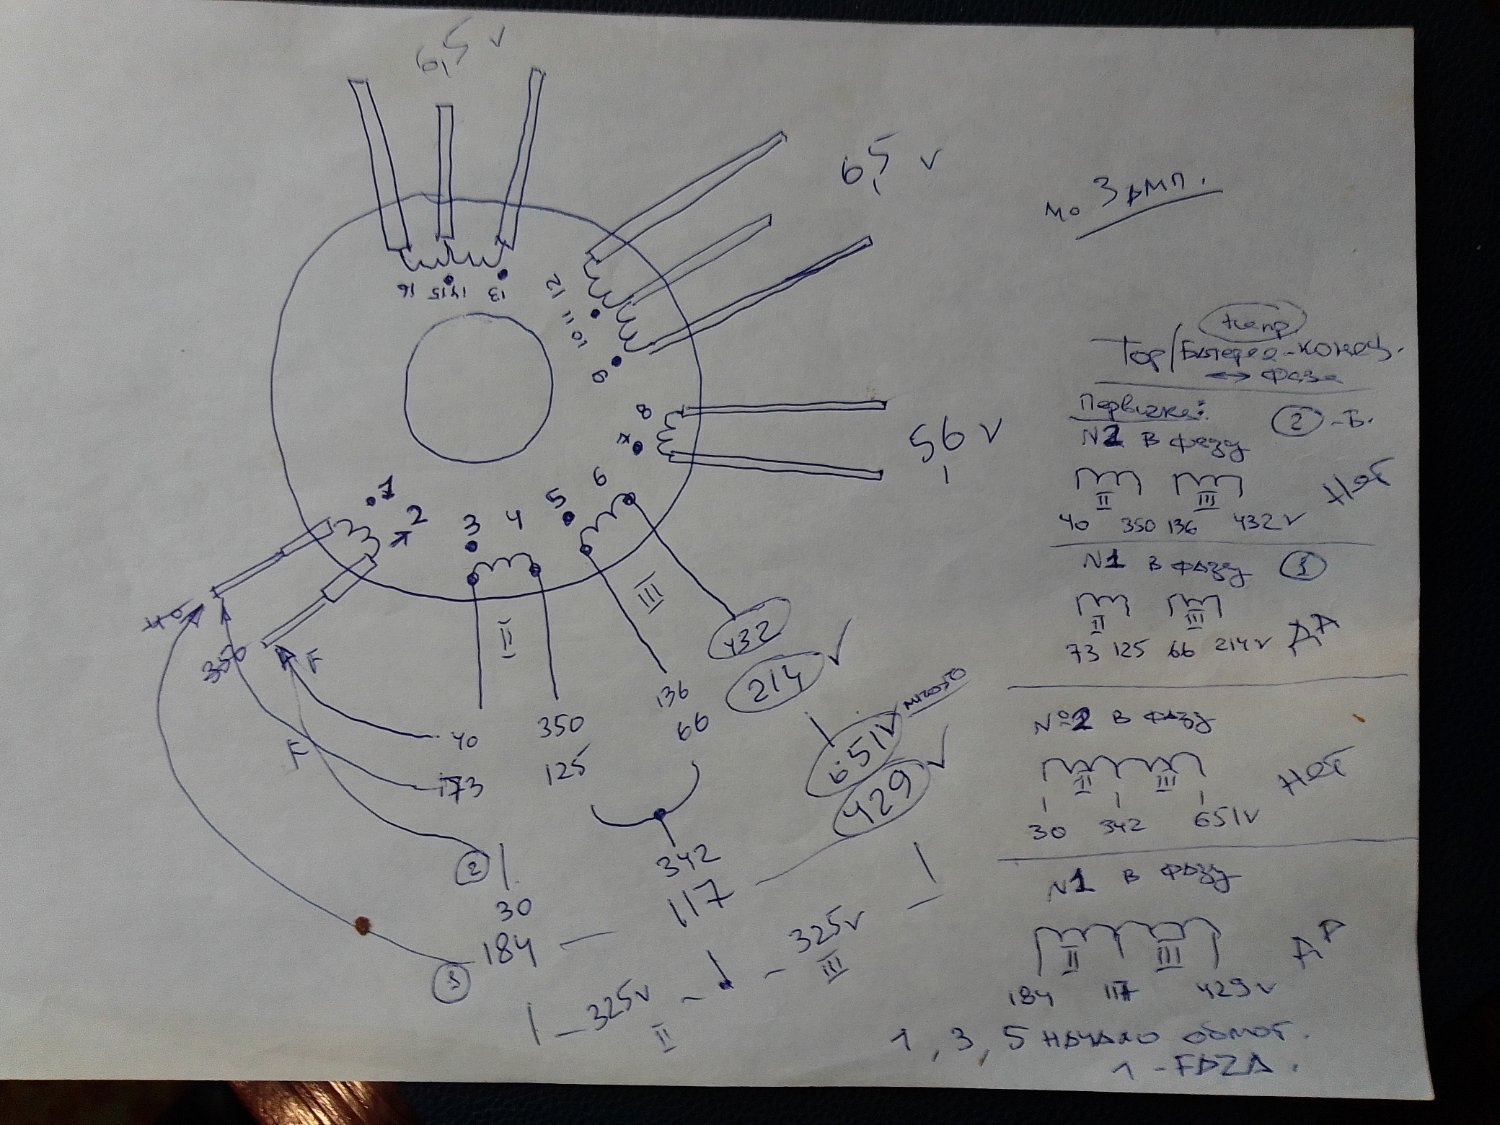 6,5 V
6,5 V
по 3 Амп.
16 15 14 13
12
11
10
9
8
7
56 V
6
5
4
3
1
2
40
350
F
F
II
III
432
214
136
66
350
125
40
173
651V
много
429
342
117
2
30
184
1
325V
II
325V
III
Тор/
конец.
↔ фаза
Первичка:
№2 в фазу
2 -Б.
II III
40 350 136 432V
Нет
№1 в фазу 1
II III
73 125 66 214V
ДА
№2 в фазу
II III
30 342 651V
Нет
№1 в фазу
II III
184 117 429V
ДА
1, 3, 5 начало обмот.
1 - FAZA.